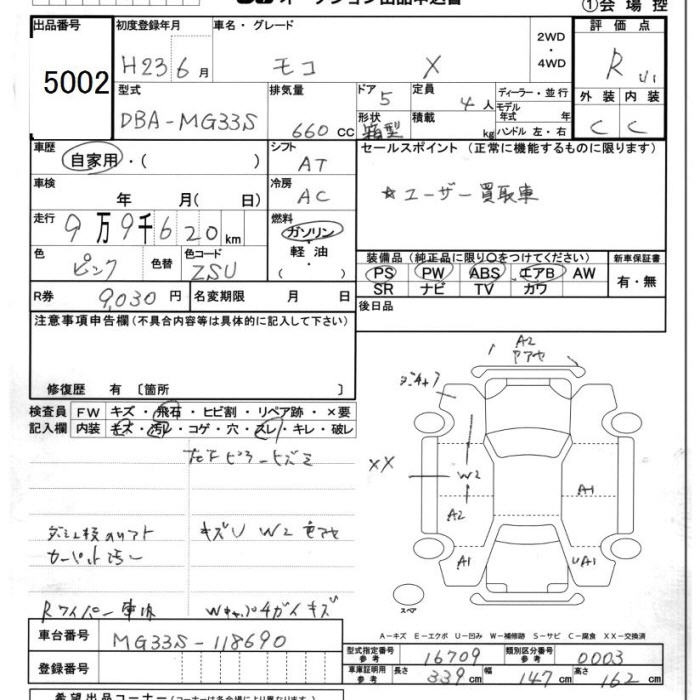 ①会場控
出品番号
5002
初度登録年月
H23 6月
車名・グレード
モコ X
2WD
・
4WD
評価点
R
外装 内装
C C
型式
DBA-MG33S
排気量
660 CC
ドア
5
形状
箱型
定員
4人
積載
kg
ディーラー・並行
モデル
年式 年
ハンドル 左・右
車歴
自家用・( )
シフト
AT
セールスポイント(正常に機能するものに限ります)
☆ユーザー買取車
車検
年 月( 日)
冷房
AC
走行
9万9千620km
燃料
ガソリン
・
軽油
・
( )
色
ピンク
色替
色コード
ZSU
装備品(純正品に限り○をつけてください)
PS PW ABS エアB AW
SR ナビ TV カワ
新車保証書
有・無
R券
9,030円
名変期限 月 日
後日品
注意事項申告欄(不具合内容等は具体的に記入して下さい)
修復歴 有〔箇所 〕
検査員
記入欄
FW キズ・飛石・ヒビ割・リペア跡・×要
内装 キズ・汚レ・コゲ・穴・スレ・キレ・破レ
カーペット汚レ
キズU W2
Rワイパー
Wキャップ4ガイキズ
A2
XX
W2
A2
A1
A1
UA1
スペア
A-キズ E-エクボ U-凹み W-補修跡 S-サビ C-腐食 XX-交換済
車台番号
MG33S-118690
登録番号
型式指定番号
参考
16709
類別区分番号
参考
0003
車庫証明用
参考
長さ
339cm
幅
147cm
高さ
162cm
希望出品コーナー